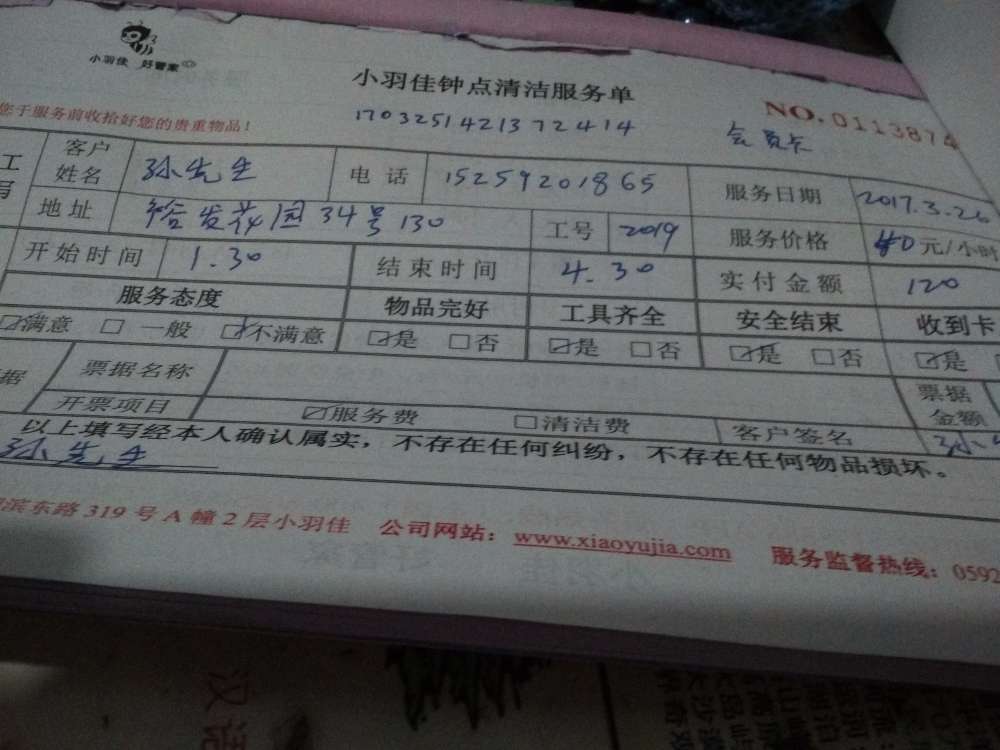 小羽佳 好管家
小羽佳钟点清洁服务单
NO.0113874
您于服务前收拾好您的贵重物品!
1703251421372414
会员卡
客户姓名 孙先生 电话 15259201865 服务日期 2017.3.26
地址 裕发花园34号130 工号 2019 服务价格 40元/小时
开始时间 1.30 结束时间 4.30 实付金额 120
服务态度 物品完好 工具齐全 安全结束 收到卡
☑满意 □一般 ☑不满意 ☑是 □否 ☑是 □否 ☑是 □否 ☑是
据 票据名称 票据金额
开票项目 ☑服务费 □清洁费 客户签名
以上填写经本人确认属实,不存在任何纠纷,不存在任何物品损坏。
孙先生
滨东路319号A幢2层小羽佳 公司网站:www.xiaoyujia.com 服务监督热线:0592
汉语